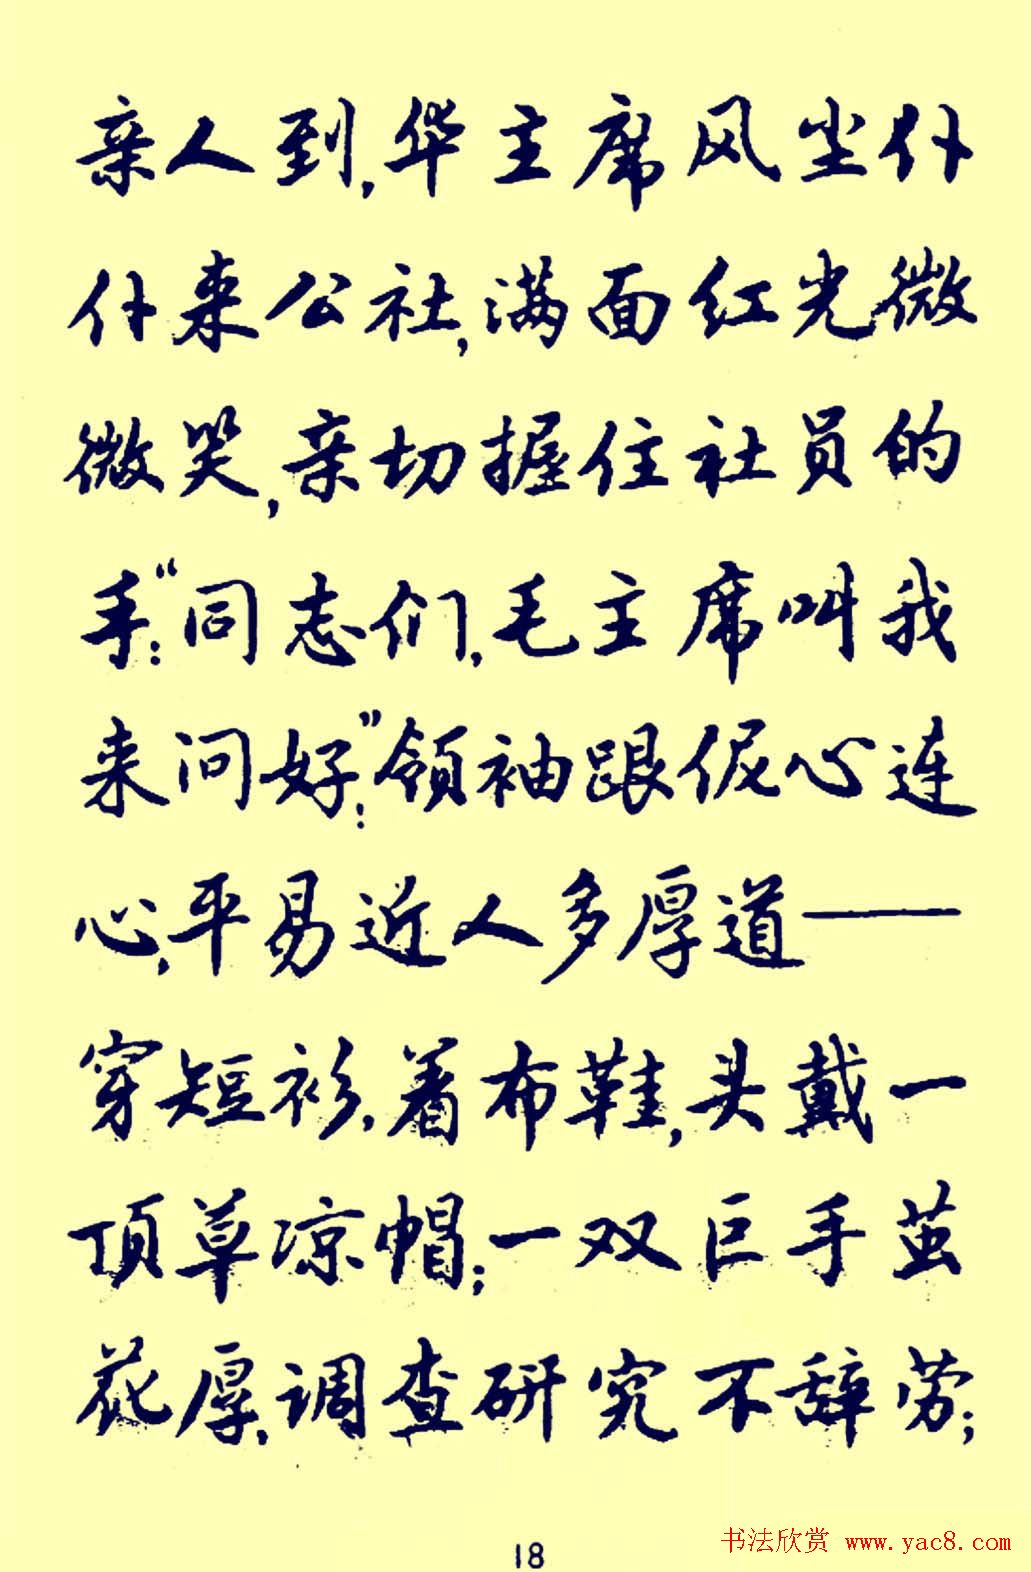 亲人到,华主席风尘仆
仆来公社,满面红光微
微笑,亲切握住社员的
手:“同志们,毛主席叫我
来问好:”领袖跟伲心连
心,平易近人多厚道——
穿短衫,着布鞋,头戴一
顶草凉帽;一双巨手茧
花厚,调查研究不辞劳;
18
书法欣赏 www.yac8.com